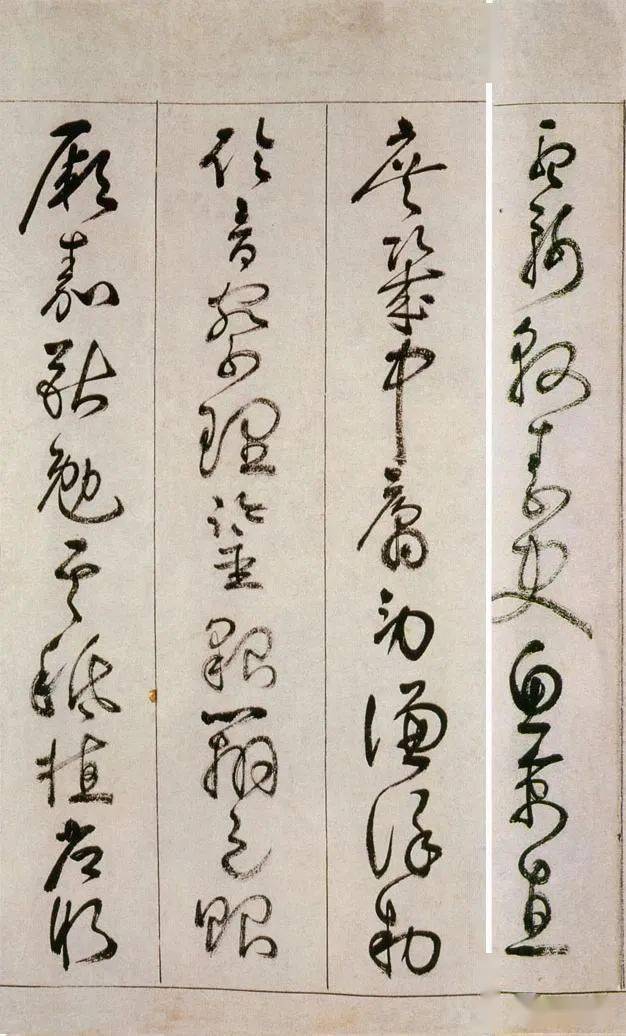 孟軻敦素史魚秉直
庶幾中庸勞謙謹勅
聆音察理鑒貌辯色貽
厥嘉猷勉其祗植省躬